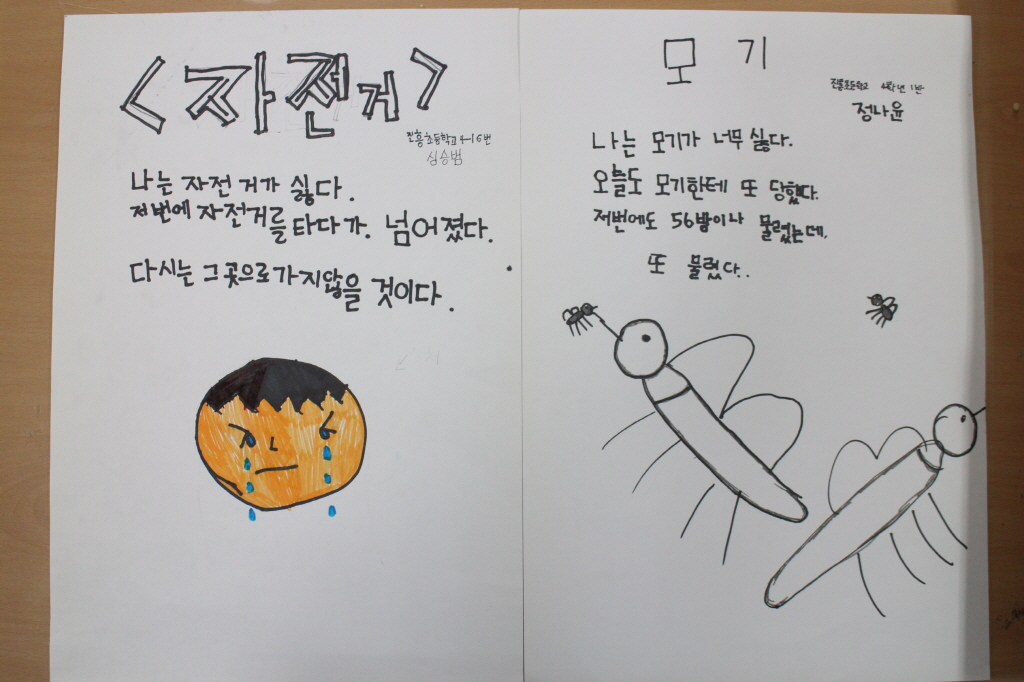 <자전거>
진흥초등학교 4-1 6번
심승범
나는 자전거가 싫다.
저번에 자전거를 타다가. 넘어졌다.
다시는 그곳으로가지않을 것이다.
모기
진흥초등학교 4학년 1반
정나윤
나는 모기가 너무 싫다.
오늘도 모기한테 또 당했다.
저번에도 56방이나 물렸는데,
또 물렸다..